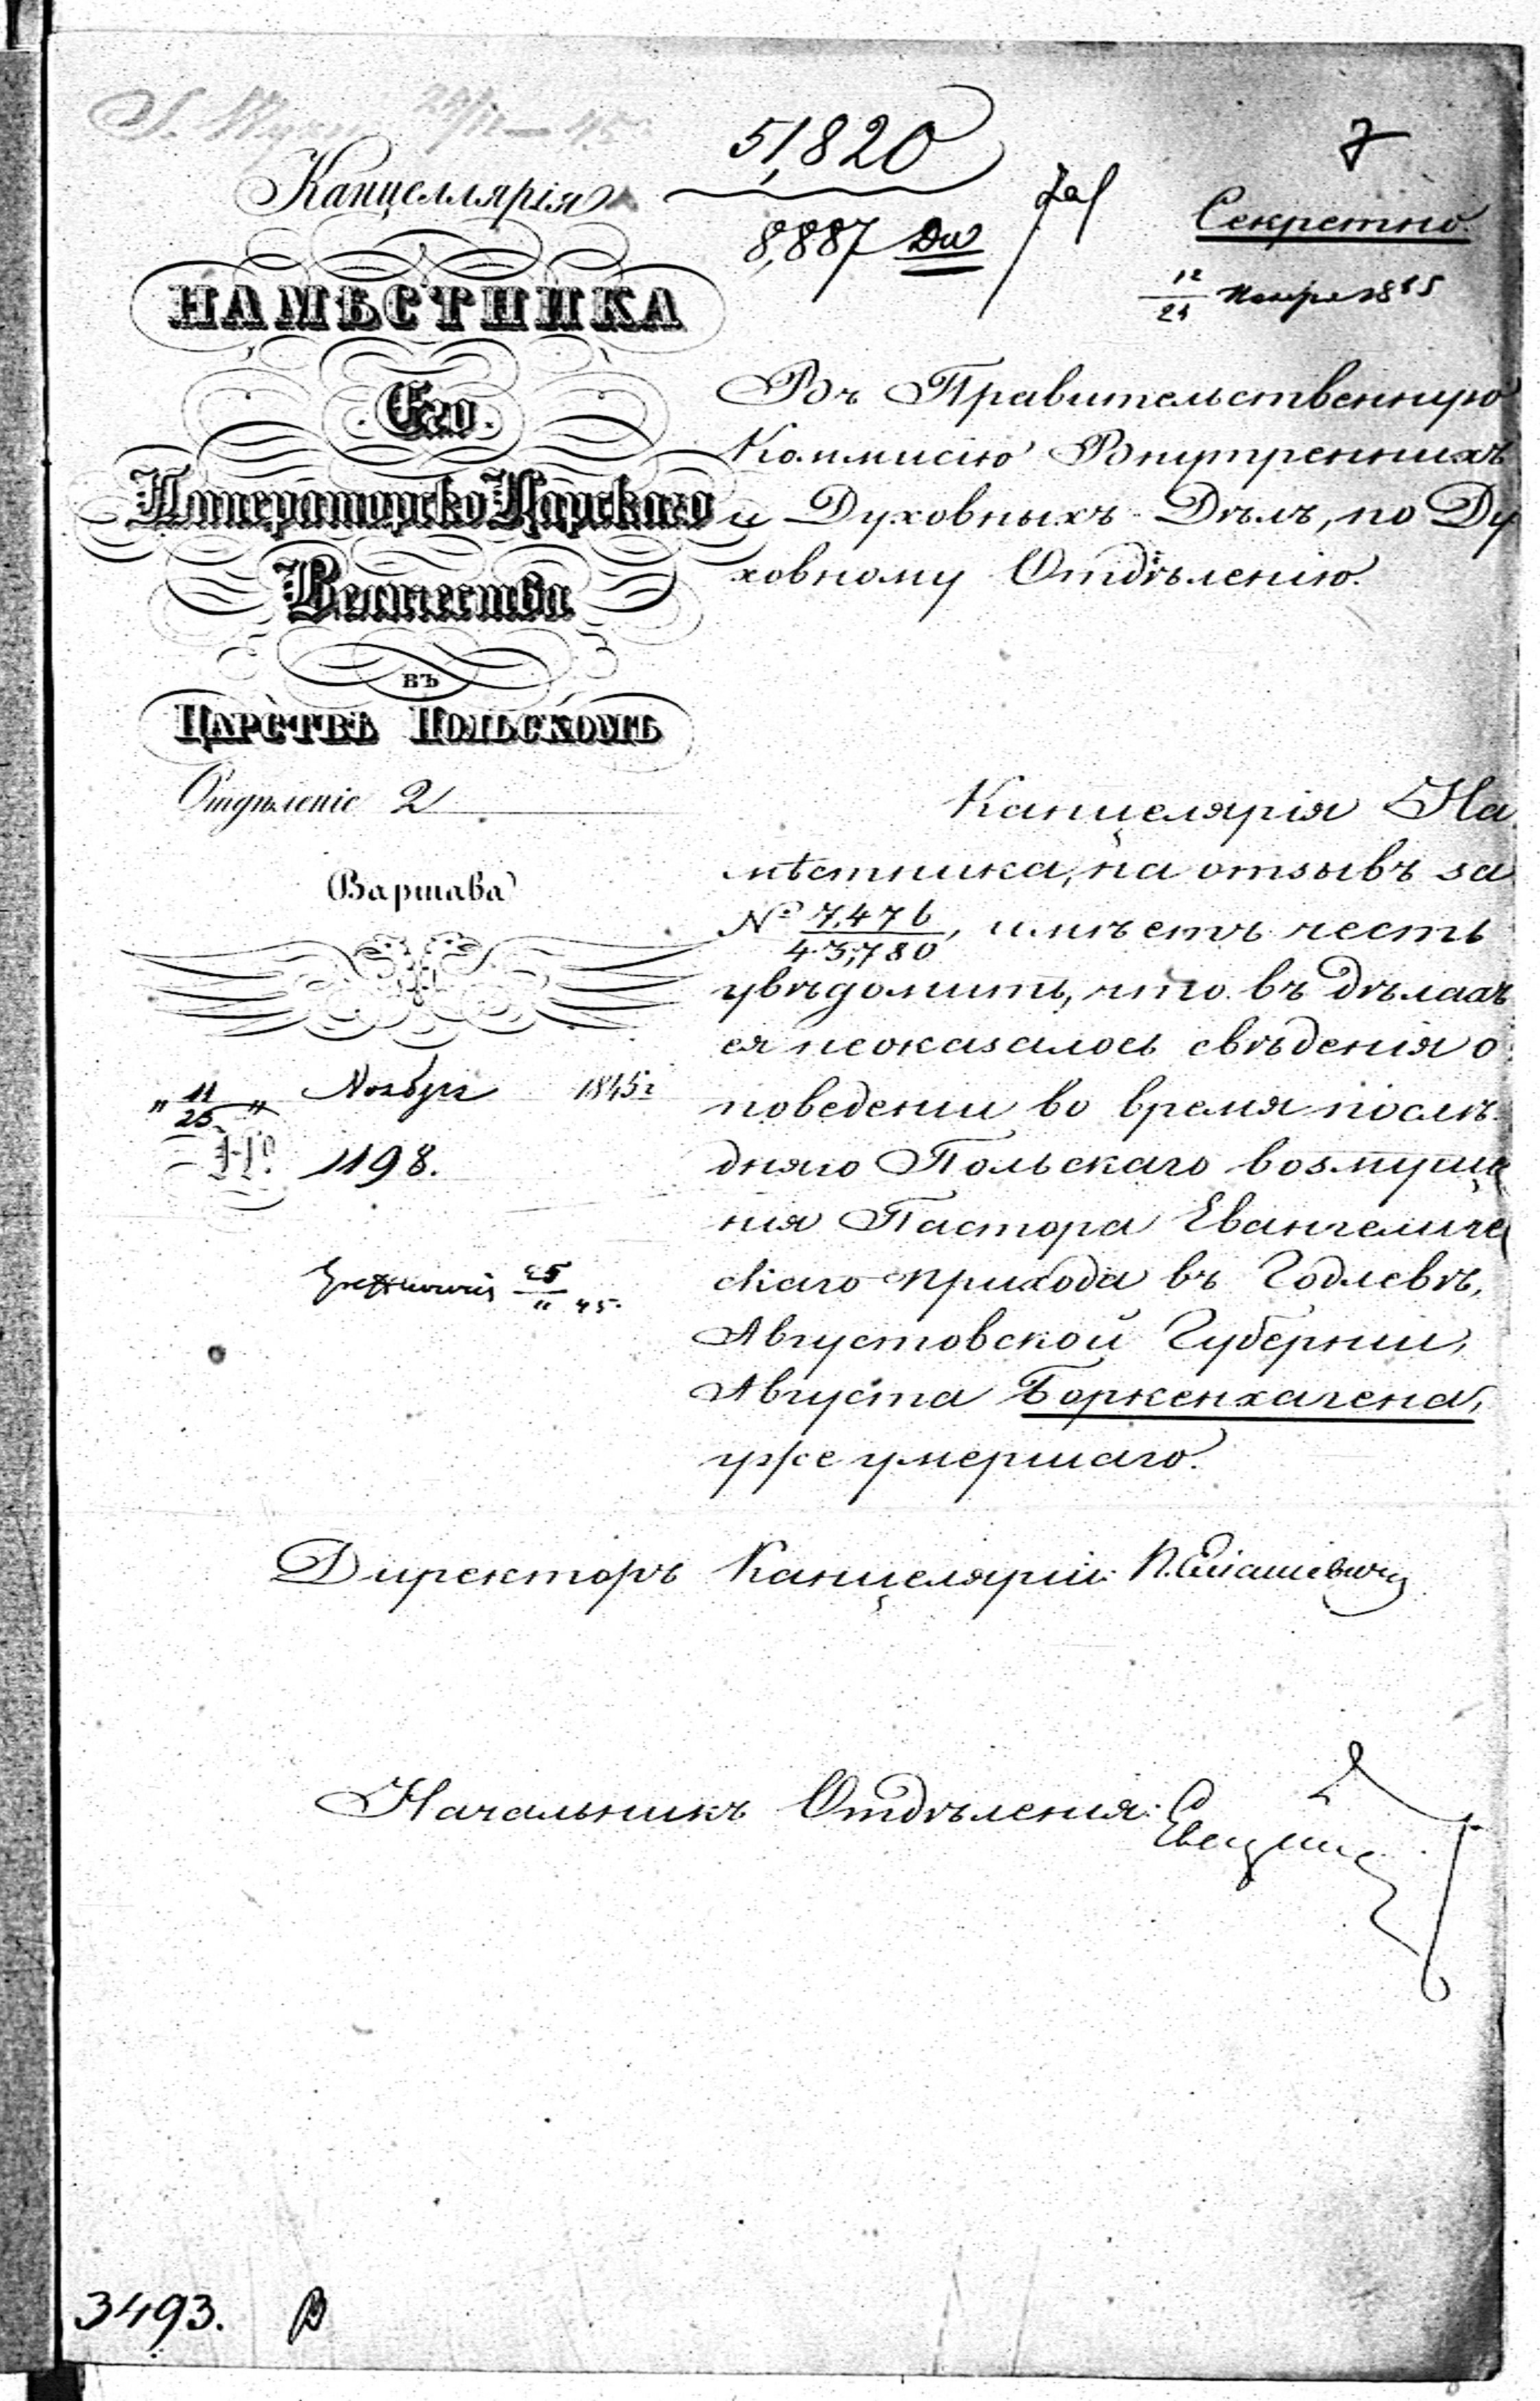 51,820
8,887
7
Секретно.
12/24 Ноября 1845
Канцеллярія
НАМѢСТНИКА
Его
Императорско Царскаго
Величества
въ
Царствѣ Польскомъ
Отдѣленіе 2
Варшава
" 11/23 " Ноября 1845 г
№ 1198.
25/11 45.
Въ Правительственную
Коммисію Внутреннихъ
и Духовныхъ Дѣлъ, по Ду
ховному Отдѣленію.
Канцелярія На
мѣстника, на отзывъ за
№ 7,476/43,780, имѣетъ честь
увѣдомить, что въ дѣлахъ
ея неоказалось свѣденія о
поведеніи во время послѣ
дняго Польскаго возмуще
нія Пастора Евангеличе
скаго прихода въ Годлевѣ,
Августовской Губерніи,
Августа Боркенхагена,
уже умершаго.
Директоръ Канцеляріи:
Начальникъ Отдѣленія:
3493.